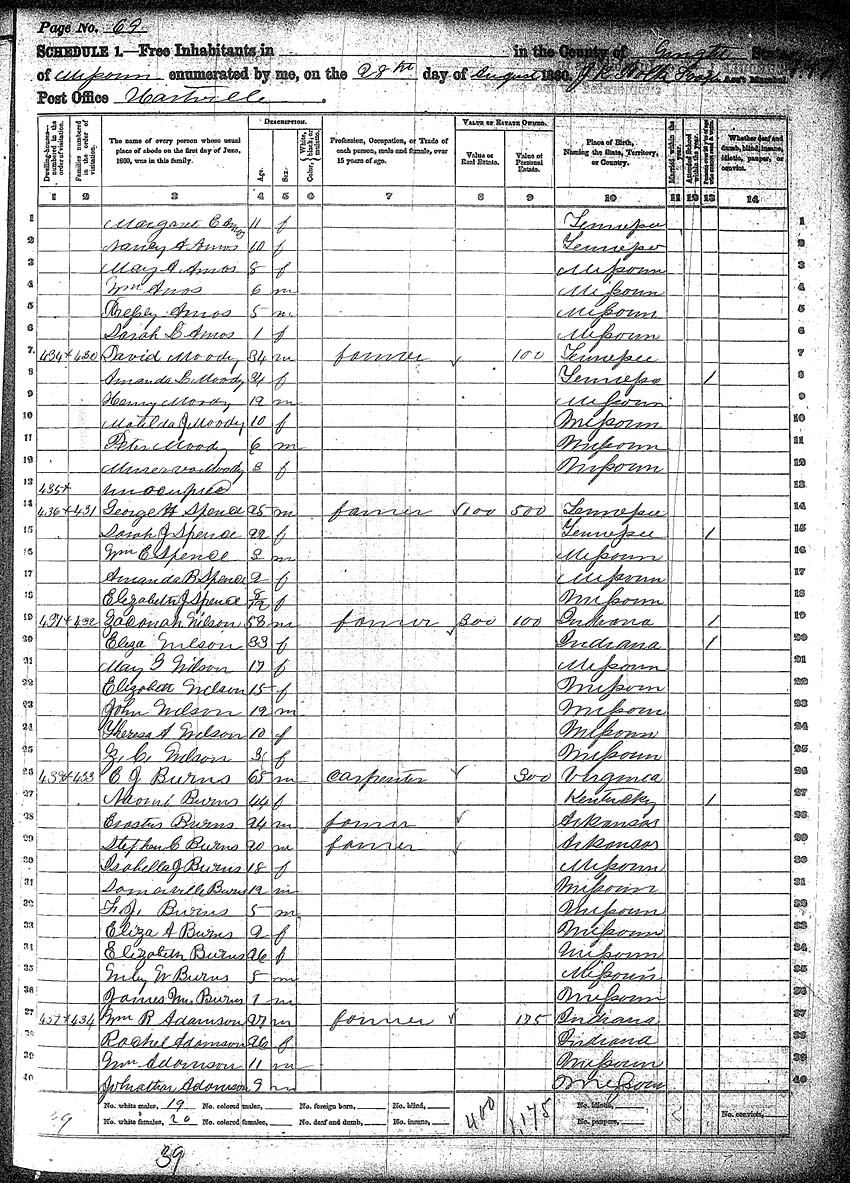 Page No. 69
SCHEDULE 1.—Free Inhabitants in in the County of State
of Missouri enumerated by me, on the 28th day of August 1860. Ass't Marshal.
Post Office Hartville.
DESCRIPTION. VALUE OF ESTATE OWNED.
Dwelling-houses—numbered in the order of visitation. Families numbered in the order of visitation. The name of every person whose usual place of abode on the first day of June, 1860, was in this family. Age. Sex. Color, White, black, or mulatto. Profession, Occupation, or Trade of each person, male and female, over 15 years of age. Value of Real Estate. Value of Personal Estate. Place of Birth, Naming the State, Territory, or Country. Married within the year. Attended School within the year. Whether deaf and dumb, blind, insane, idiotic, pauper, or convict.
1 2 3 4 5 6 7 8 9 10 11 12 13 14
1 Margaret E Amos 11 f Tennessee 1
2 Nancy A Amos 10 f Tennessee 2
3 Mary A Amos 8 f Missouri 3
4 Wm Amos 6 m Missouri 4
5 Amos 5 m Missouri 5
6 Sarah E Amos 1 f Missouri 6
7 434 430 David Moody 34 m farmer 100 Tennessee 7
8 Amanda L Moody 34 f Tennessee 1 8
9 Henry Moody 12 m Missouri 9
10 Matilda J Moody 10 f Missouri 10
11 Peter Moody 6 m Missouri 11
12 Minerva Moody 3 f Missouri 12
13 435 unocupied 13
14 436 431 George H Spence 25 m farmer 100 500 Tennessee 14
15 Sarah J Spence 22 f Tennessee 1 15
16 Wm E Spence 3 m Missouri 16
17 Amanda B Spence 2 f Missouri 17
18 Elizabeth J Spence 8/12 f Missouri 18
19 437 432 Nelson 53 m farmer 300 100 Indiana 1 19
20 Eliza Nelson 33 f Indiana 1 20
21 Mary Nelson 17 f Missouri 21
22 Elizabett Nelson 15 f Missouri 22
23 John Nelson 12 m Missouri 23
24 Theresa A Nelson 10 f Missouri 24
25 Z. C. Nelson 3 f Missouri 25
26 438 433 C J Burns 65 m carpenter 300 Virginia 26
27 Naomi Burns 44 f Kentucky 1 27
28 Erastus Burns 24 m farmer Arkansas 28
29 Stephen C Burns 20 m farmer Arkansas 29
30 Isabella J Burns 18 f Missouri 30
31 Somerville Burns 12 m Missouri 31
32 Burns 5 m Missouri 32
33 Eliza A Burns 2 f Missouri 33
34 Elizabeth Burns 26 f Missouri 34
35 W Burns 5 m Missouri 35
36 James M. Burns 1 m Missouri 36
37 434 Wm R Adamson 27 m farmer 175 Indiana 37
38 Rachel Adamson 26 f Indiana 38
39 Wm Adamson 11 m Missouri 39
40 Johnathan Adamson 9 m Missouri 40
No. white males, 19 No. colored males, No. foreign born, No. blind, 400 1,175 No. idiotic,
No. white females, 20 No. colored females, No. deaf and dumb, No. insane, No. paupers, No. convicts,
39